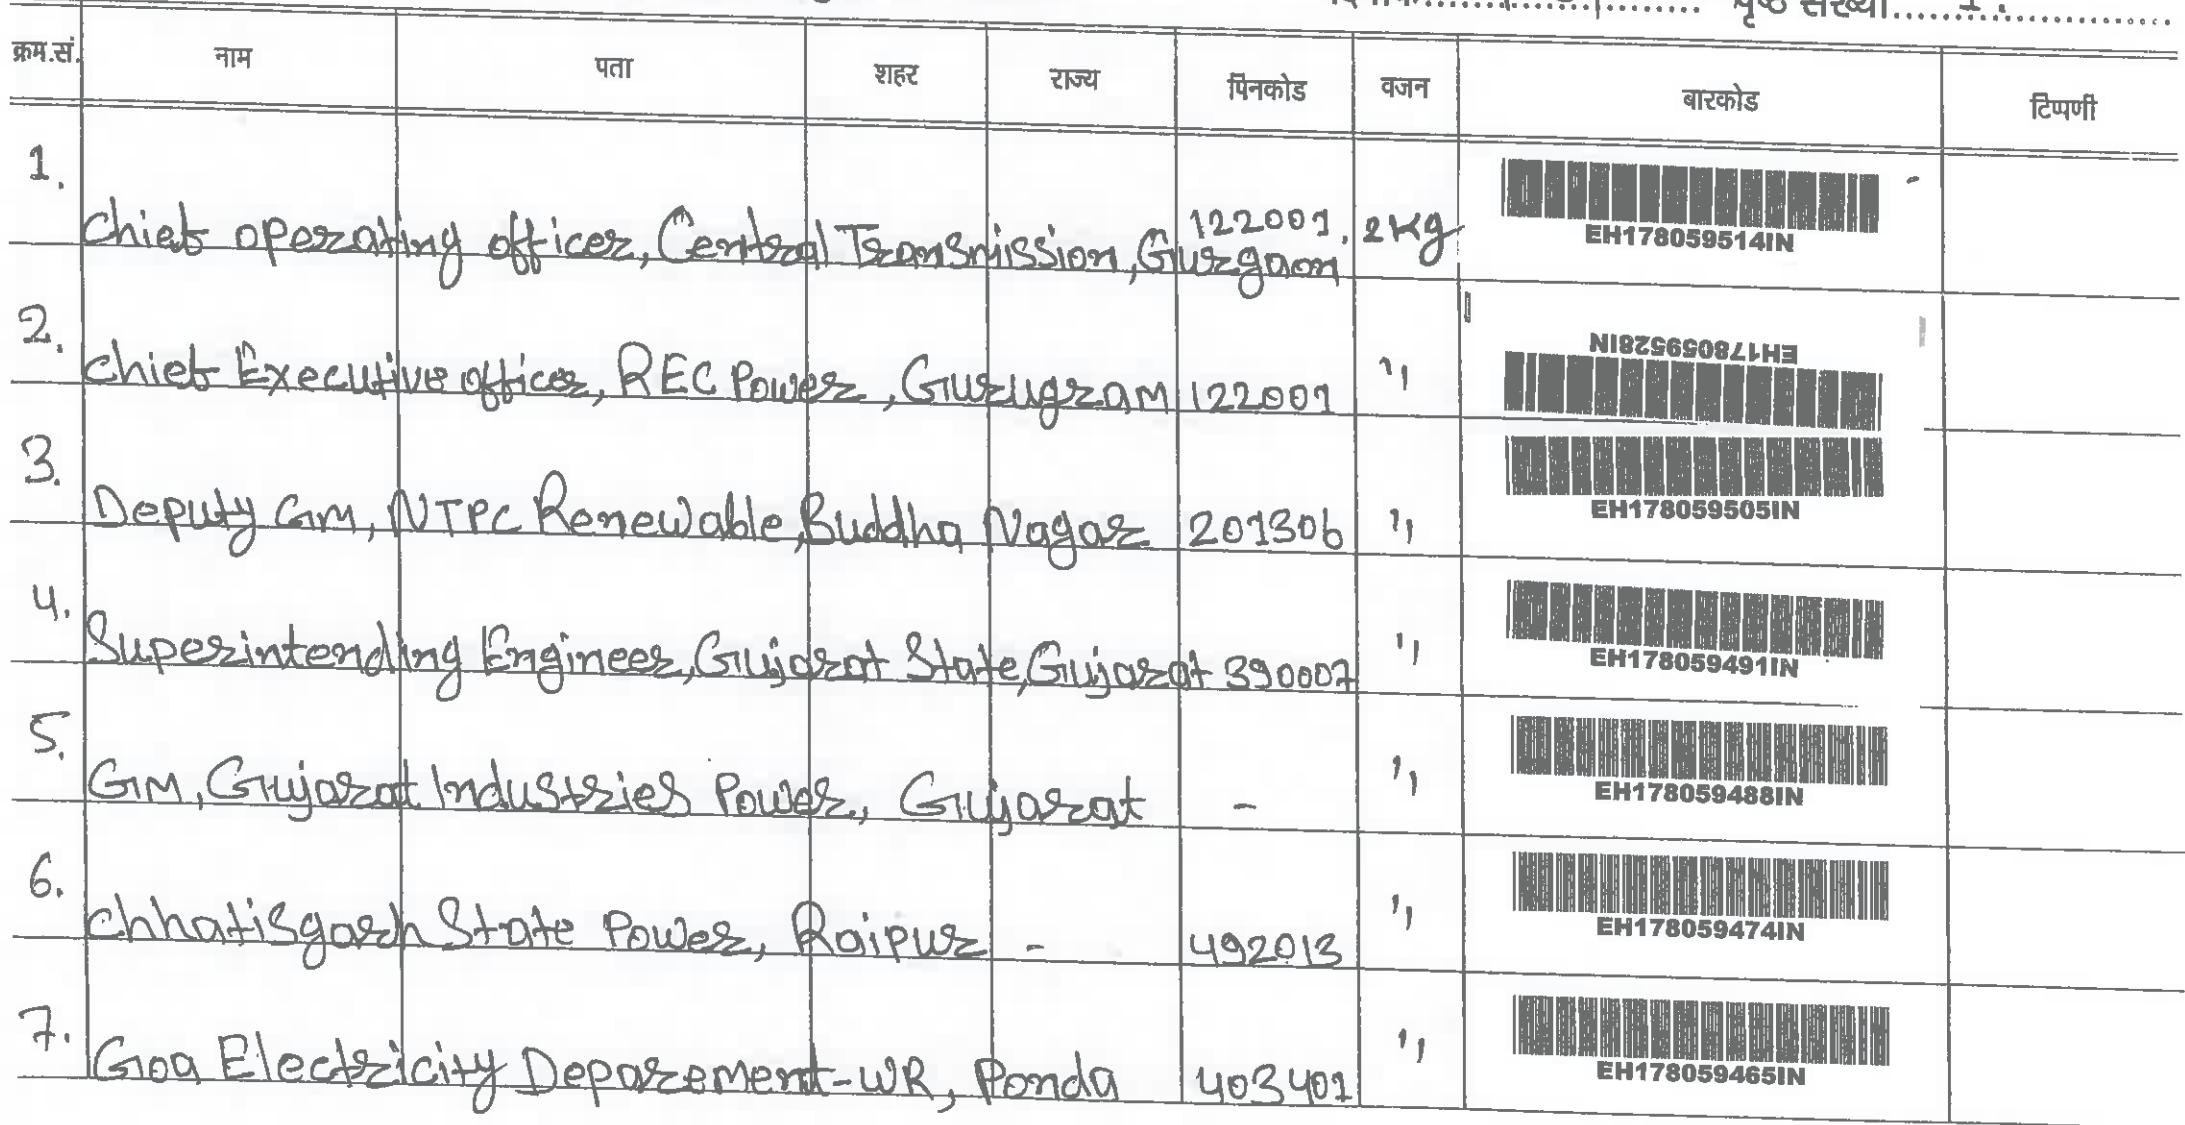 पृष्ठ संख्या..........1.
क्रम.सं. नाम पता शहर राज्य पिनकोड वजन बारकोड टिप्पणी
1. Chief operating officer, Central Transmission, Gurgaon 122001. 2Kg EH178059514IN
2. Chief Executive officer, REC Power, Gurugram 122001 " EH178059528IN
3. Deputy GM, NTPC Renewable, Buddha Nagar 201306 " EH178059505IN
4. Superintending Engineer, Gujarat State, Gujarat 390007 " EH178059491IN
5. GM, Gujarat Industries Power, Gujarat - " EH178059488IN
6. Chhatisgarh State Power, Raipur - 492013 " EH178059474IN
7. Goa Electricity Deparement-WR, Ponda 403401 " EH178059465IN